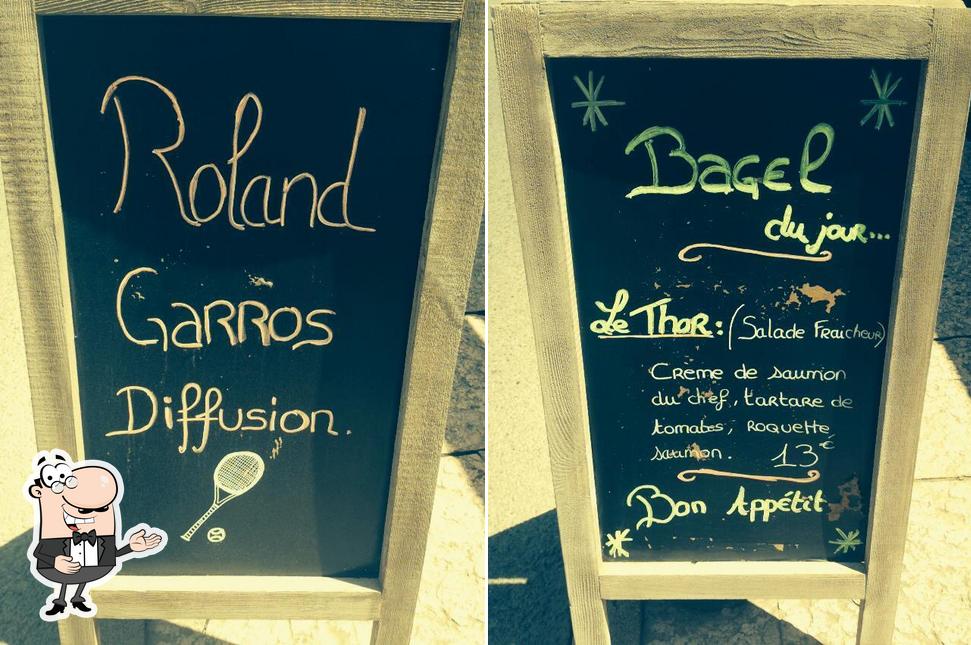 Roland
Garros
Diffusion.
Bagel
du jour...
Le Thor: (Salade Fraicheur)
Crème de saumon
du chef, tartare de
tomates, roquette,
saumon. 13€
Bon Appétit